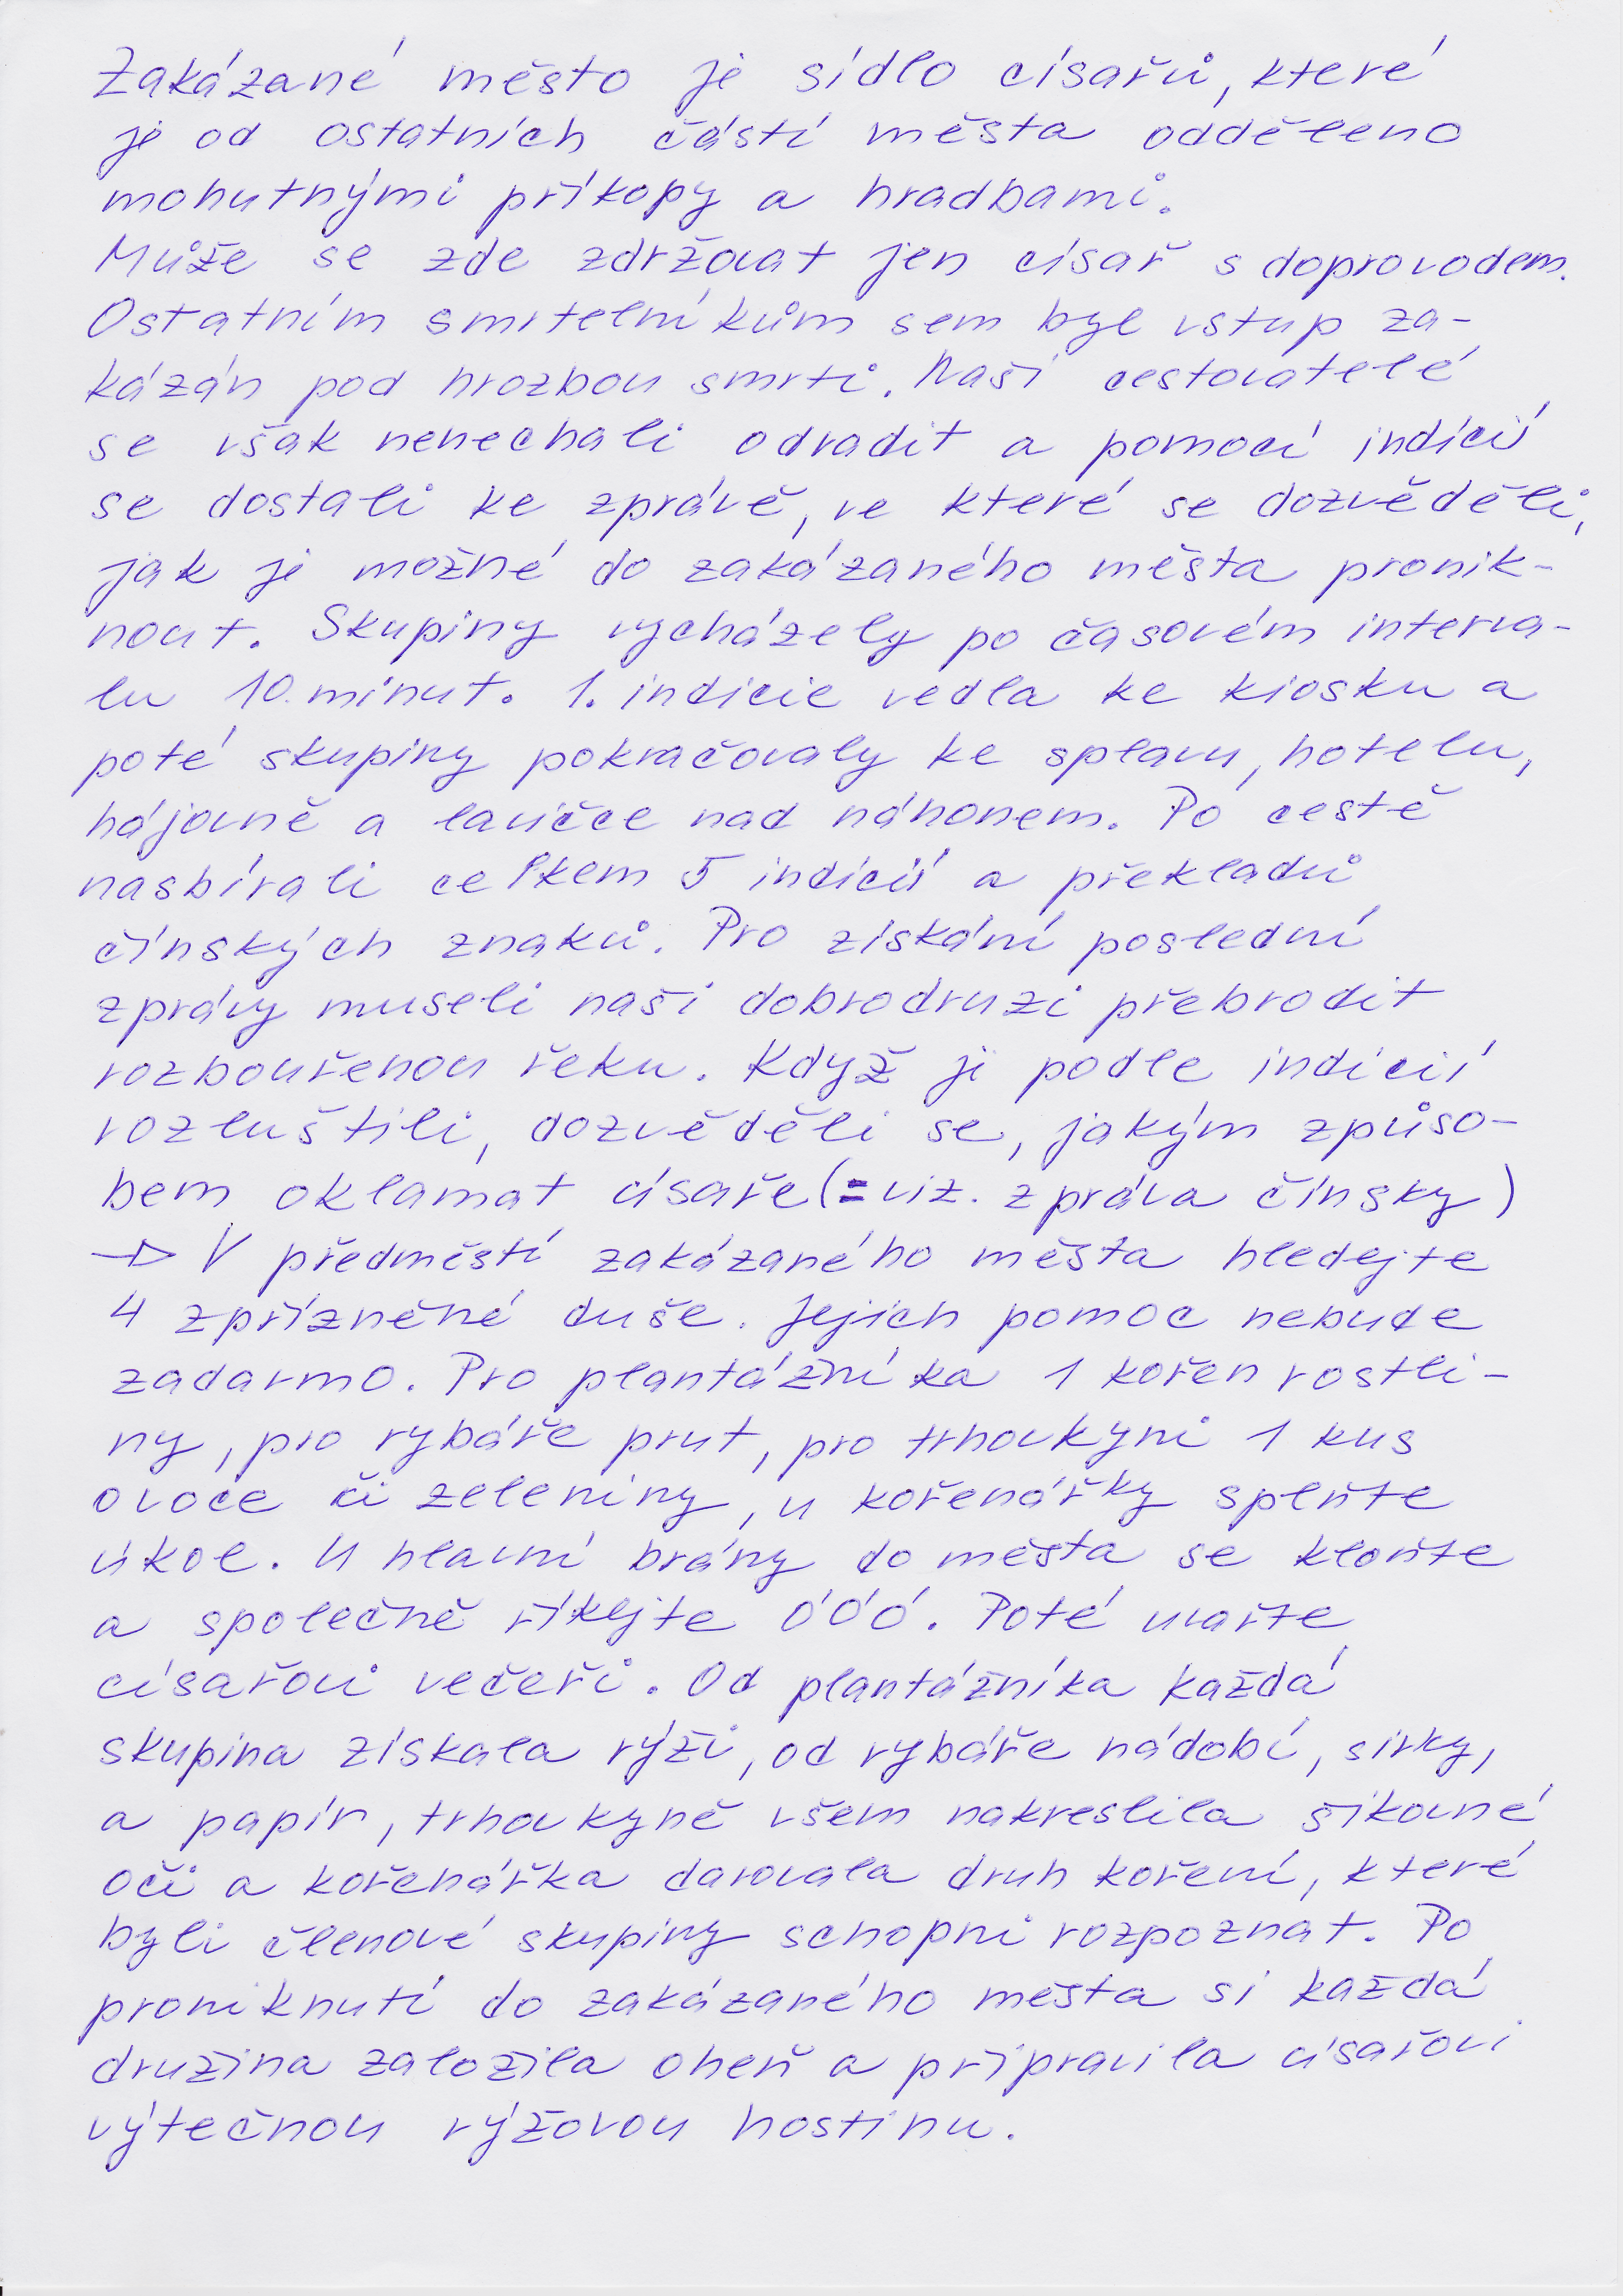 Zakázané město je sídlo císařů, které
je od ostatních částí města odděleno
mohutnými příkopy a hradbami.
Může se zde zdržovat jen císař s doprovodem.
Ostatním smrtelníkům sem byl vstup za-
kázán pod hrozbou smrti. Naši cestovatelé
se však nenechali odradit a pomocí indicií
se dostali ke zprávě, ve které se dozvěděli,
jak je možné do zakázaného města pronik-
nout. Skupiny vycházely po časovém interva-
lu 10 minut. 1. indicie vedla ke kiosku a
poté skupiny pokračovaly ke splavu, hotelu,
hájovně a lavičce nad náhonem. Po cestě
nasbírali celkem 5 indicií a překladů
čínských znaků. Pro získání poslední
zprávy museli naši dobrodruzi přebrodit
rozbouřenou řeku. Když ji podle indicií
rozluštili, dozvěděli se, jakým způso-
bem oklamat císaře (= viz. zpráva čínsky)
→ V předměstí zakázaného města hledejte
4 zpřízněné duše. Jejich pomoc nebude
zadarmo. Pro plantážníka 1 kořen rostli-
ny, pro rybáře prut, pro trhovkyni 1 kus
ovoce či zeleniny, u kořenářky splňte
úkol. U hlavní brány do města se kloňte
a společně říkejte ÓÓÓ. Poté uvařte
císařovi večeři. Od plantážníka každá
skupina získala rýži, od rybáře nádobí, sirky,
a papír, trhovkyně všem nakreslila šikovné
oči a kořenářka darovala druh koření, které
byli členové skupiny schopni rozpoznat. Po
proniknutí do zakázaného města si každá
družina založila oheň a připravila císařovi
výtečnou rýžovou hostinu.